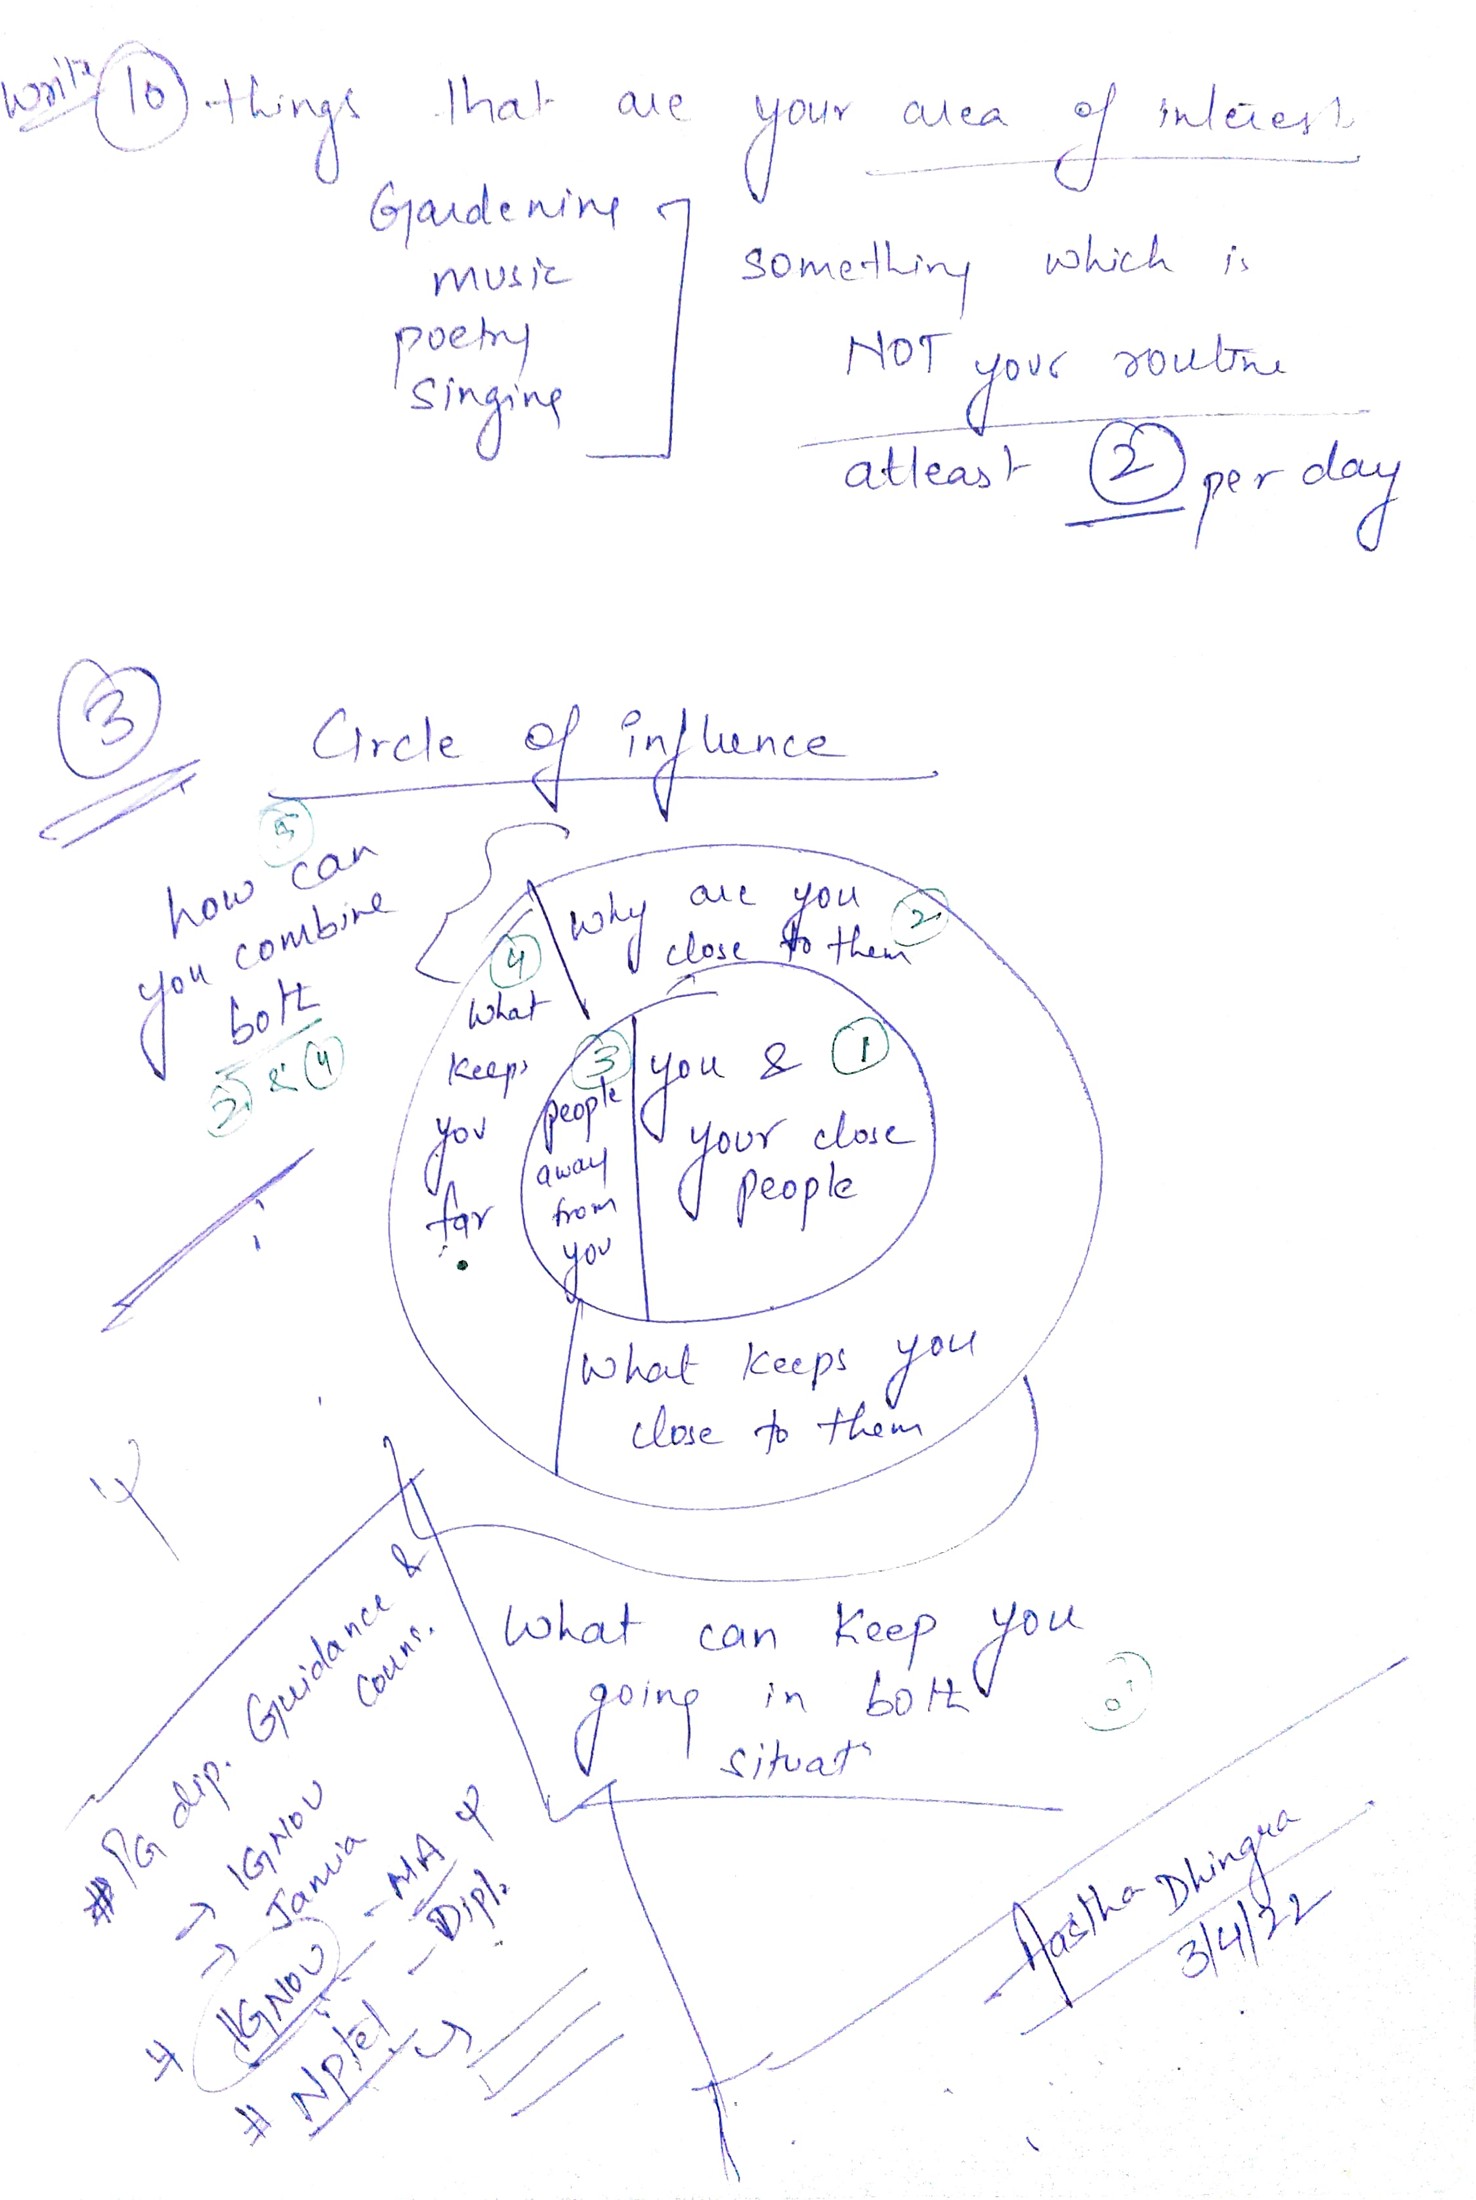 Write 10 things that are your area of interest
Gardening
music
poetry
Singing
something which is
NOT your routine
atleast 2 per day
3
Circle of influence
5
how can
you combine
both
2 & 4
Why are you 2
close to them
4
What
keeps
you
far
3
people
away
from
you
you & 1
your close
people
What keeps you
close to them
What can keep you
going in both
situat
# PG dip. Guidance &
Couns.
→ IGNOU
→ Jamia
IGNOU - MA Ψ
- Dipl.
# Nptel
Aastha Dhingra
3/4/22